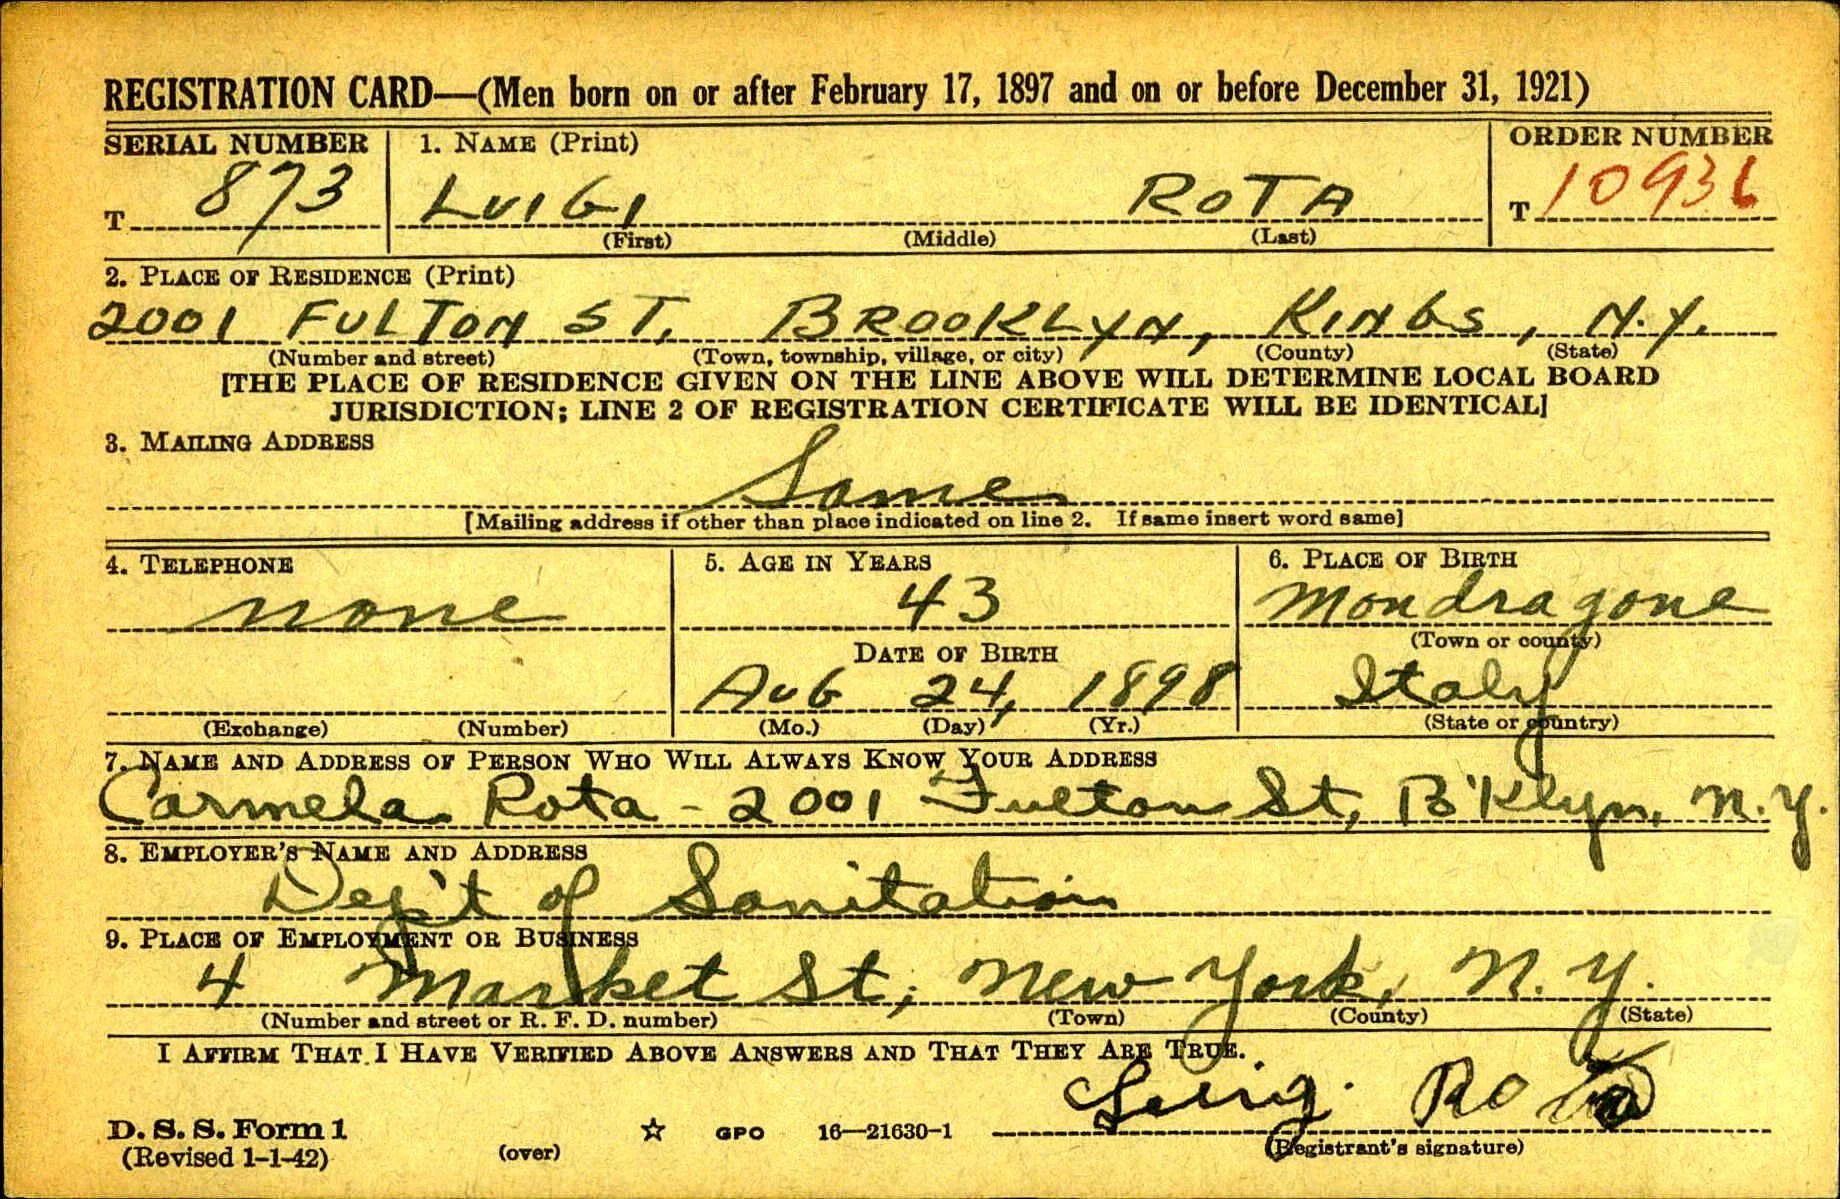 REGISTRATION CARD—(Men born on or after February 17, 1897 and on or before December 31, 1921)
SERIAL NUMBER 1. NAME (Print) ORDER NUMBER
T 873 LUIGI ROTA T 10936
(First) (Middle) (Last)
2. PLACE OF RESIDENCE (Print)
2001 FULTON ST, BROOKLYN, KINGS, N.Y.
(Number and street) (Town, township, village, or city) (County) (State)
[THE PLACE OF RESIDENCE GIVEN ON THE LINE ABOVE WILL DETERMINE LOCAL BOARD
JURISDICTION; LINE 2 OF REGISTRATION CERTIFICATE WILL BE IDENTICAL]
3. MAILING ADDRESS
Same
[Mailing address if other than place indicated on line 2. If same insert word same]
4. TELEPHONE 5. AGE IN YEARS 6. PLACE OF BIRTH
none 43 Mondragone
DATE OF BIRTH (Town or county)
AUG 24, 1898 Italy
(Exchange) (Number) (Mo.) (Day) (Yr.) (State or country)
7. NAME AND ADDRESS OF PERSON WHO WILL ALWAYS KNOW YOUR ADDRESS
Carmela Rota - 2001 Fulton St, B'klyn, N.Y.
8. EMPLOYER'S NAME AND ADDRESS
Dep't of Sanitation
9. PLACE OF EMPLOYMENT OR BUSINESS
4 Market St, New York, N.Y.
(Number and street or R. F. D. number) (Town) (County) (State)
I AFFIRM THAT I HAVE VERIFIED ABOVE ANSWERS AND THAT THEY ARE TRUE.
Luigi Rota
D. S. S. Form 1
(Revised 1-1-42) (over) ☆ GPO 16—21630-1 (Registrant's signature)